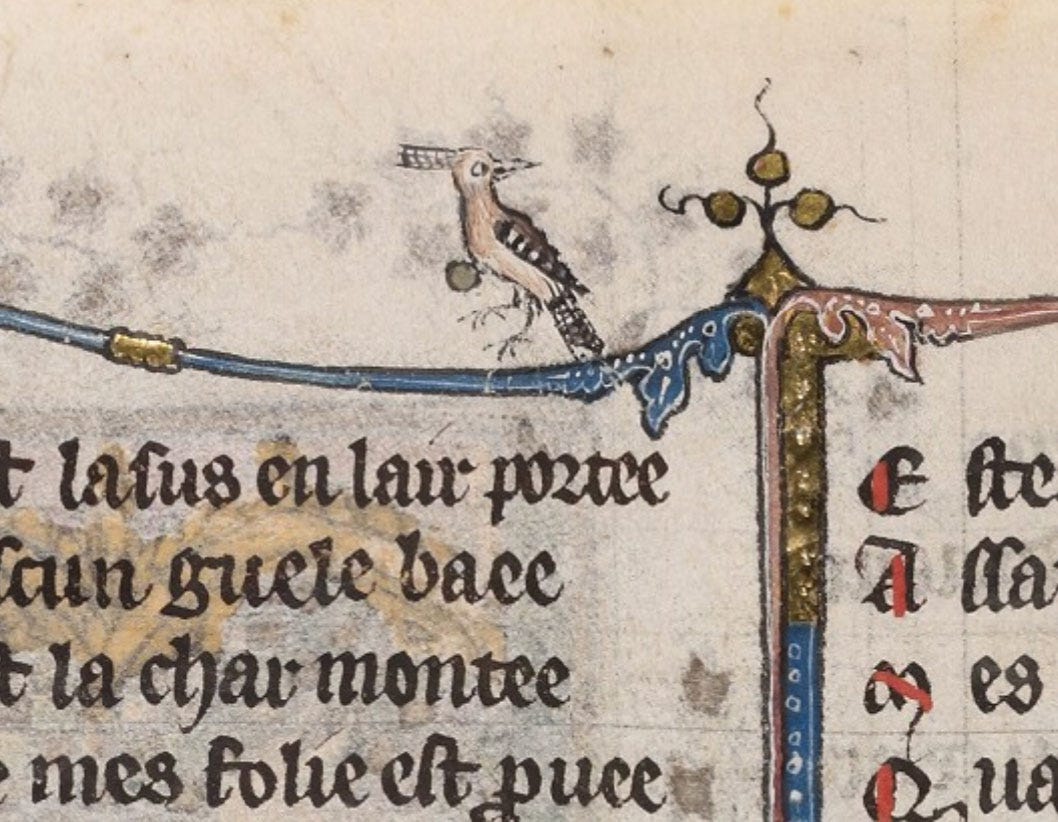 t laſus en lair portee
ſcun guele baee
t la char montee
e mes folie eſt ꝓuee
E ſte
A ſſa
M es
Q ua